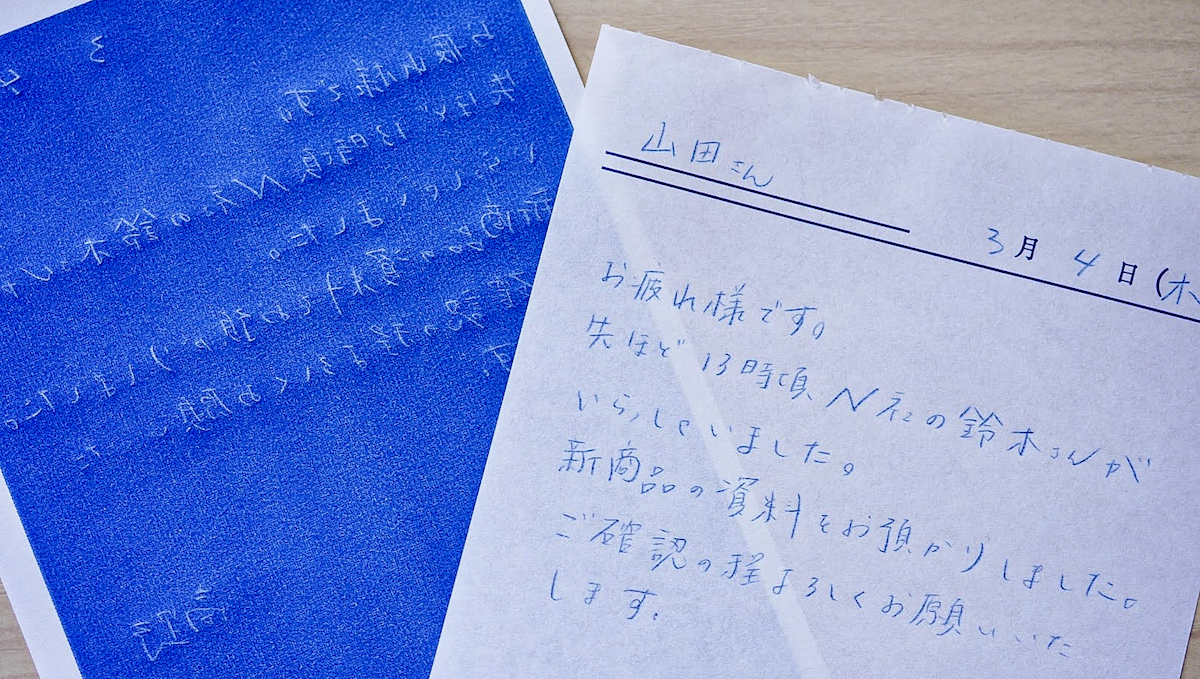 山田さん
3月4日(木
お疲れ様です。
先ほど13時頃N社の鈴木さんが
いらしていました。
新商品の資料をお預かりしました。
ご確認の程よろしくお願いいた
します。